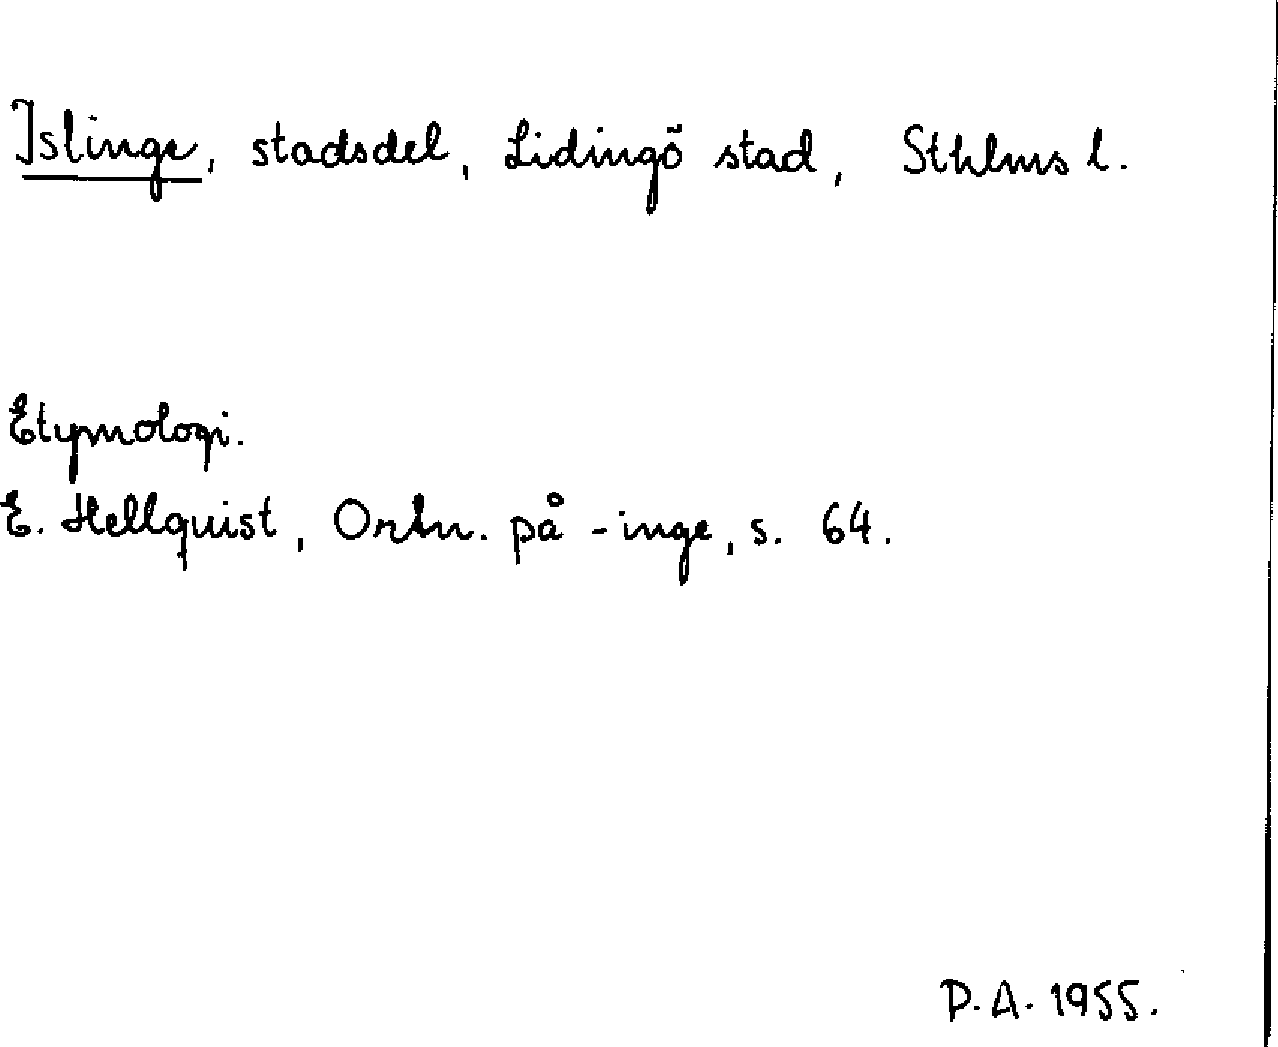 Islinge, stadsdel, Lidingö stad, Sthlms l.
Etymologi.
E. Hellquist, Ortn. på -inge, s. 64.
P.A. 1955.